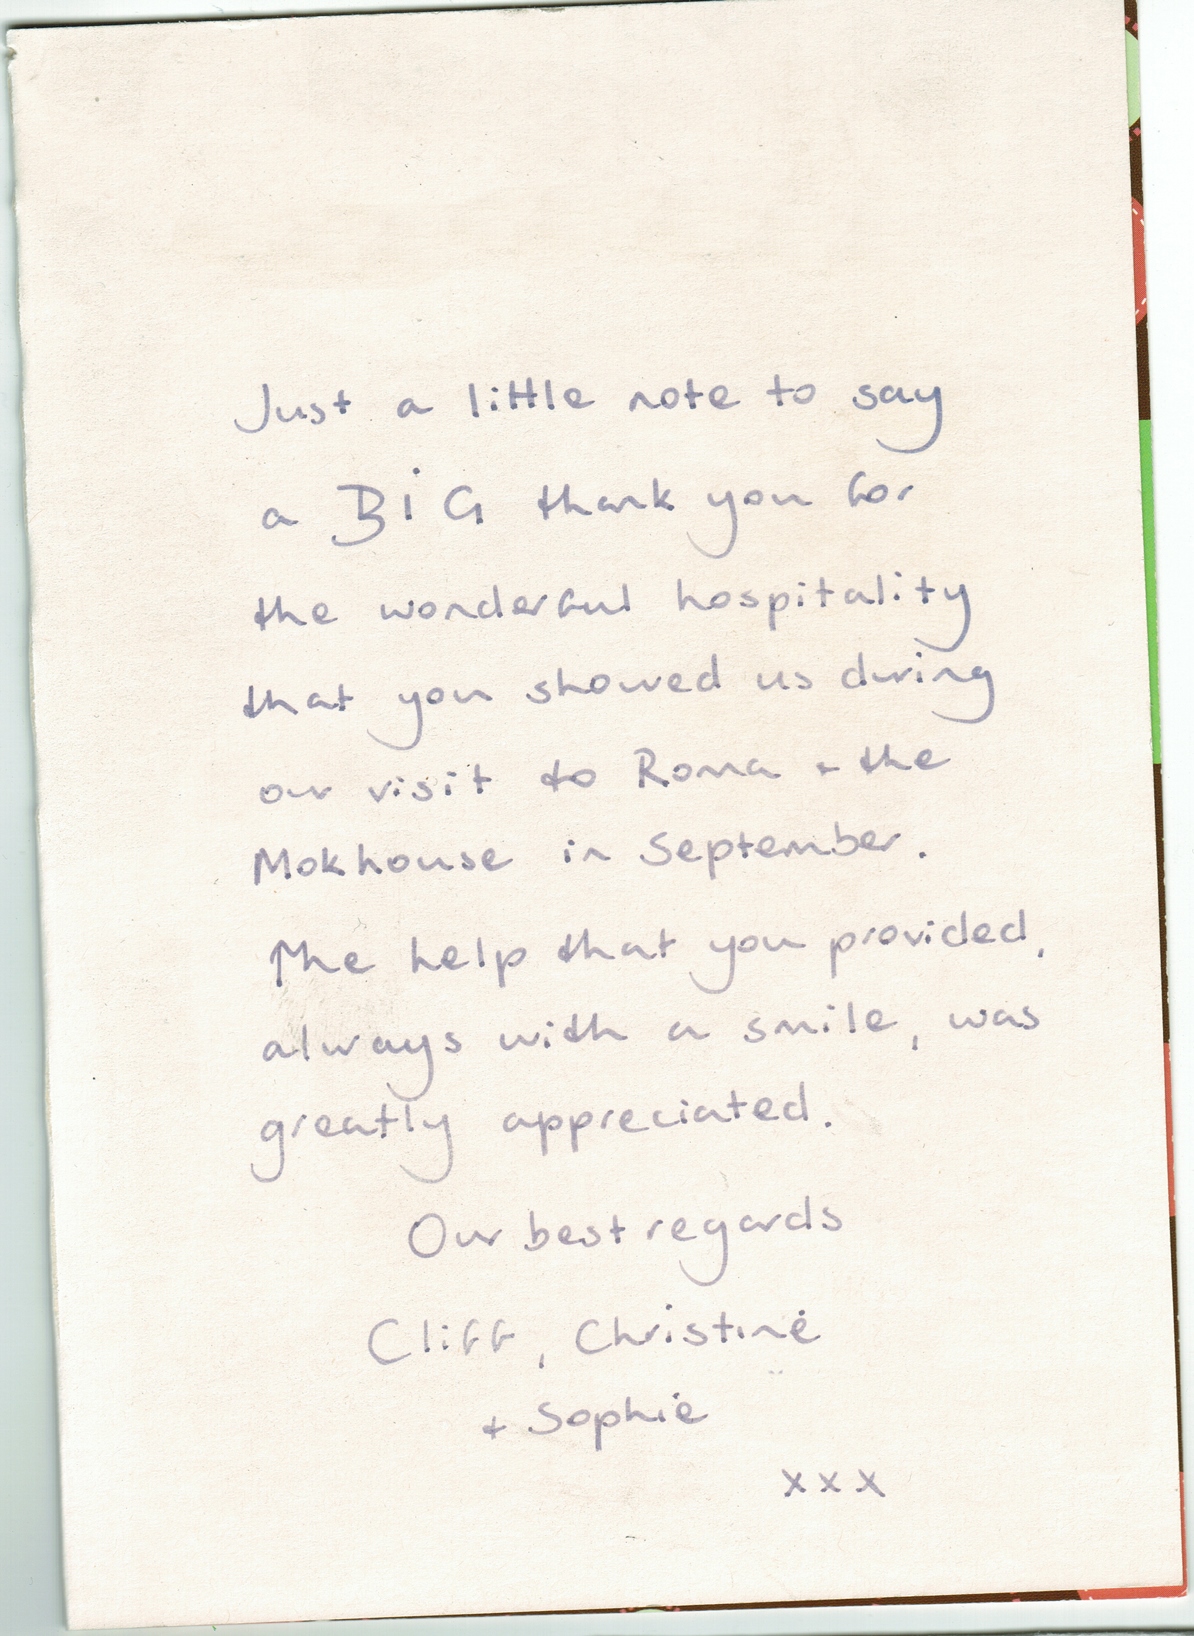 Just a little note to say
a BiG thank you for
the wonderful hospitality
that you showed us during
our visit to Roma + the
Mokhouse in September.
The help that you provided,
always with a smile, was
greatly appreciated.
Our best regards
Cliff, Christine
+ Sophie
xxx